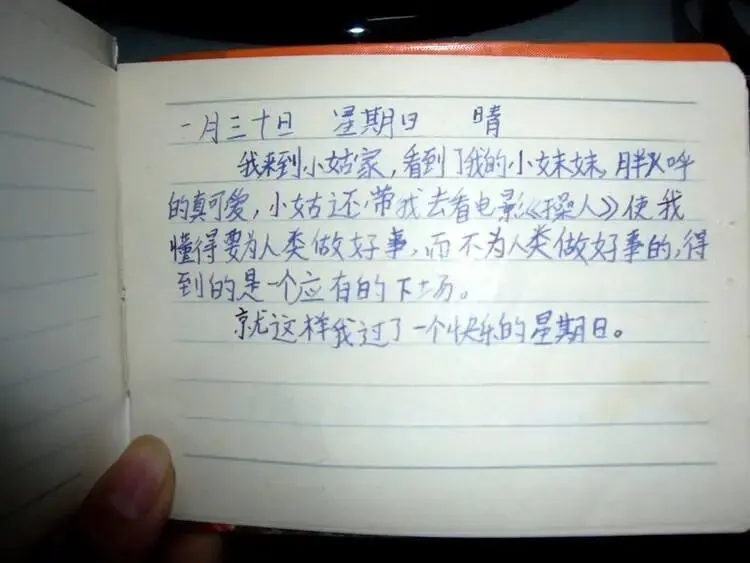 一月三十日 星期日 晴
我来到小姑家，看到了我的小妹妹，胖呼
的真可爱，小姑还带我去看电影《操人》使我
懂得要为人类做好事，而不为人类做好事的，得
到的是一个应有的下场。
就这样我过了一个快乐的星期日。